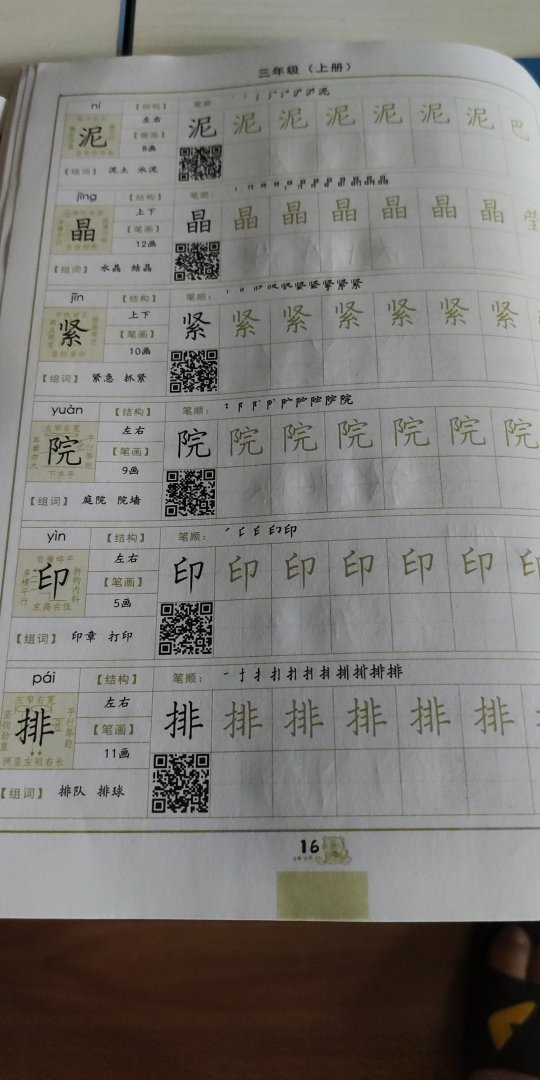 三年级（上册）
ní 【结构】 笔顺：
泥 左右 泥 泥 泥 泥 泥 泥 泥
【笔画】
8画
【组词】 泥土 水泥
jīng 【结构】 笔顺：
晶 上下 晶 晶 晶 晶 晶 晶 晶
【笔画】
12画
【组词】 水晶 结晶
jǐn 【结构】 笔顺：
紧 上下 紧 紧 紧 紧 紧 紧 紧
【笔画】
10画
【组词】 紧急 抓紧
yuàn 【结构】 笔顺：
左窄右宽
院 左右 院 院 院 院 院 院 院
平行等距
下齐平
【笔画】
9画
【组词】 庭院 院墙
yìn 【结构】 笔顺：
印 左右 印 印 印 印 印 印
折钩内斜
左高右低
【笔画】
5画
【组词】 印章 打印
pái 【结构】 笔顺：
左窄右宽
排 左右 排 排 排 排 排 排
平行等距
两竖左短右长
【笔画】
11画
【组词】 排队 排球
16